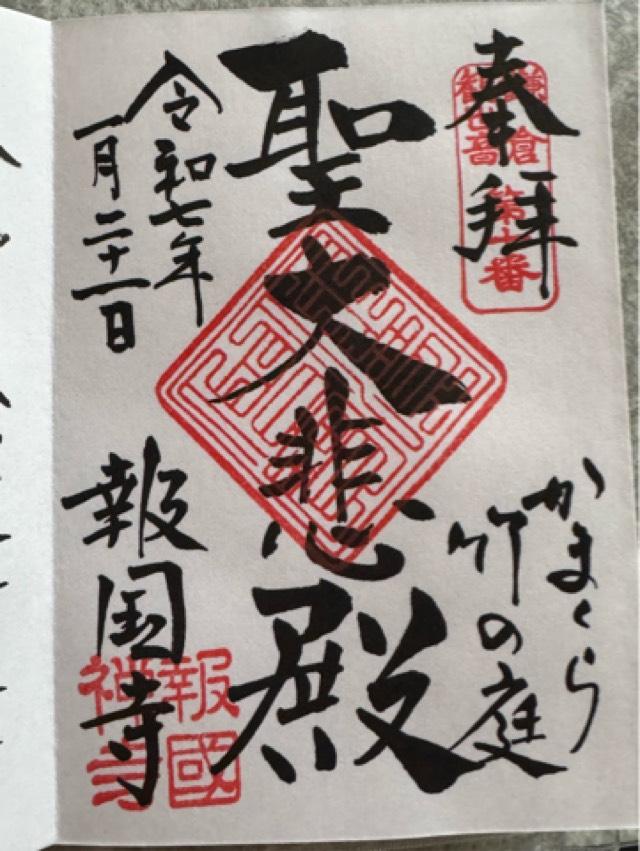 奉拝
鎌倉
観世音
第十番
かまくら
竹の庭
聖大悲殿
令和七年
一月二十一日
報国寺
報國
禅寺